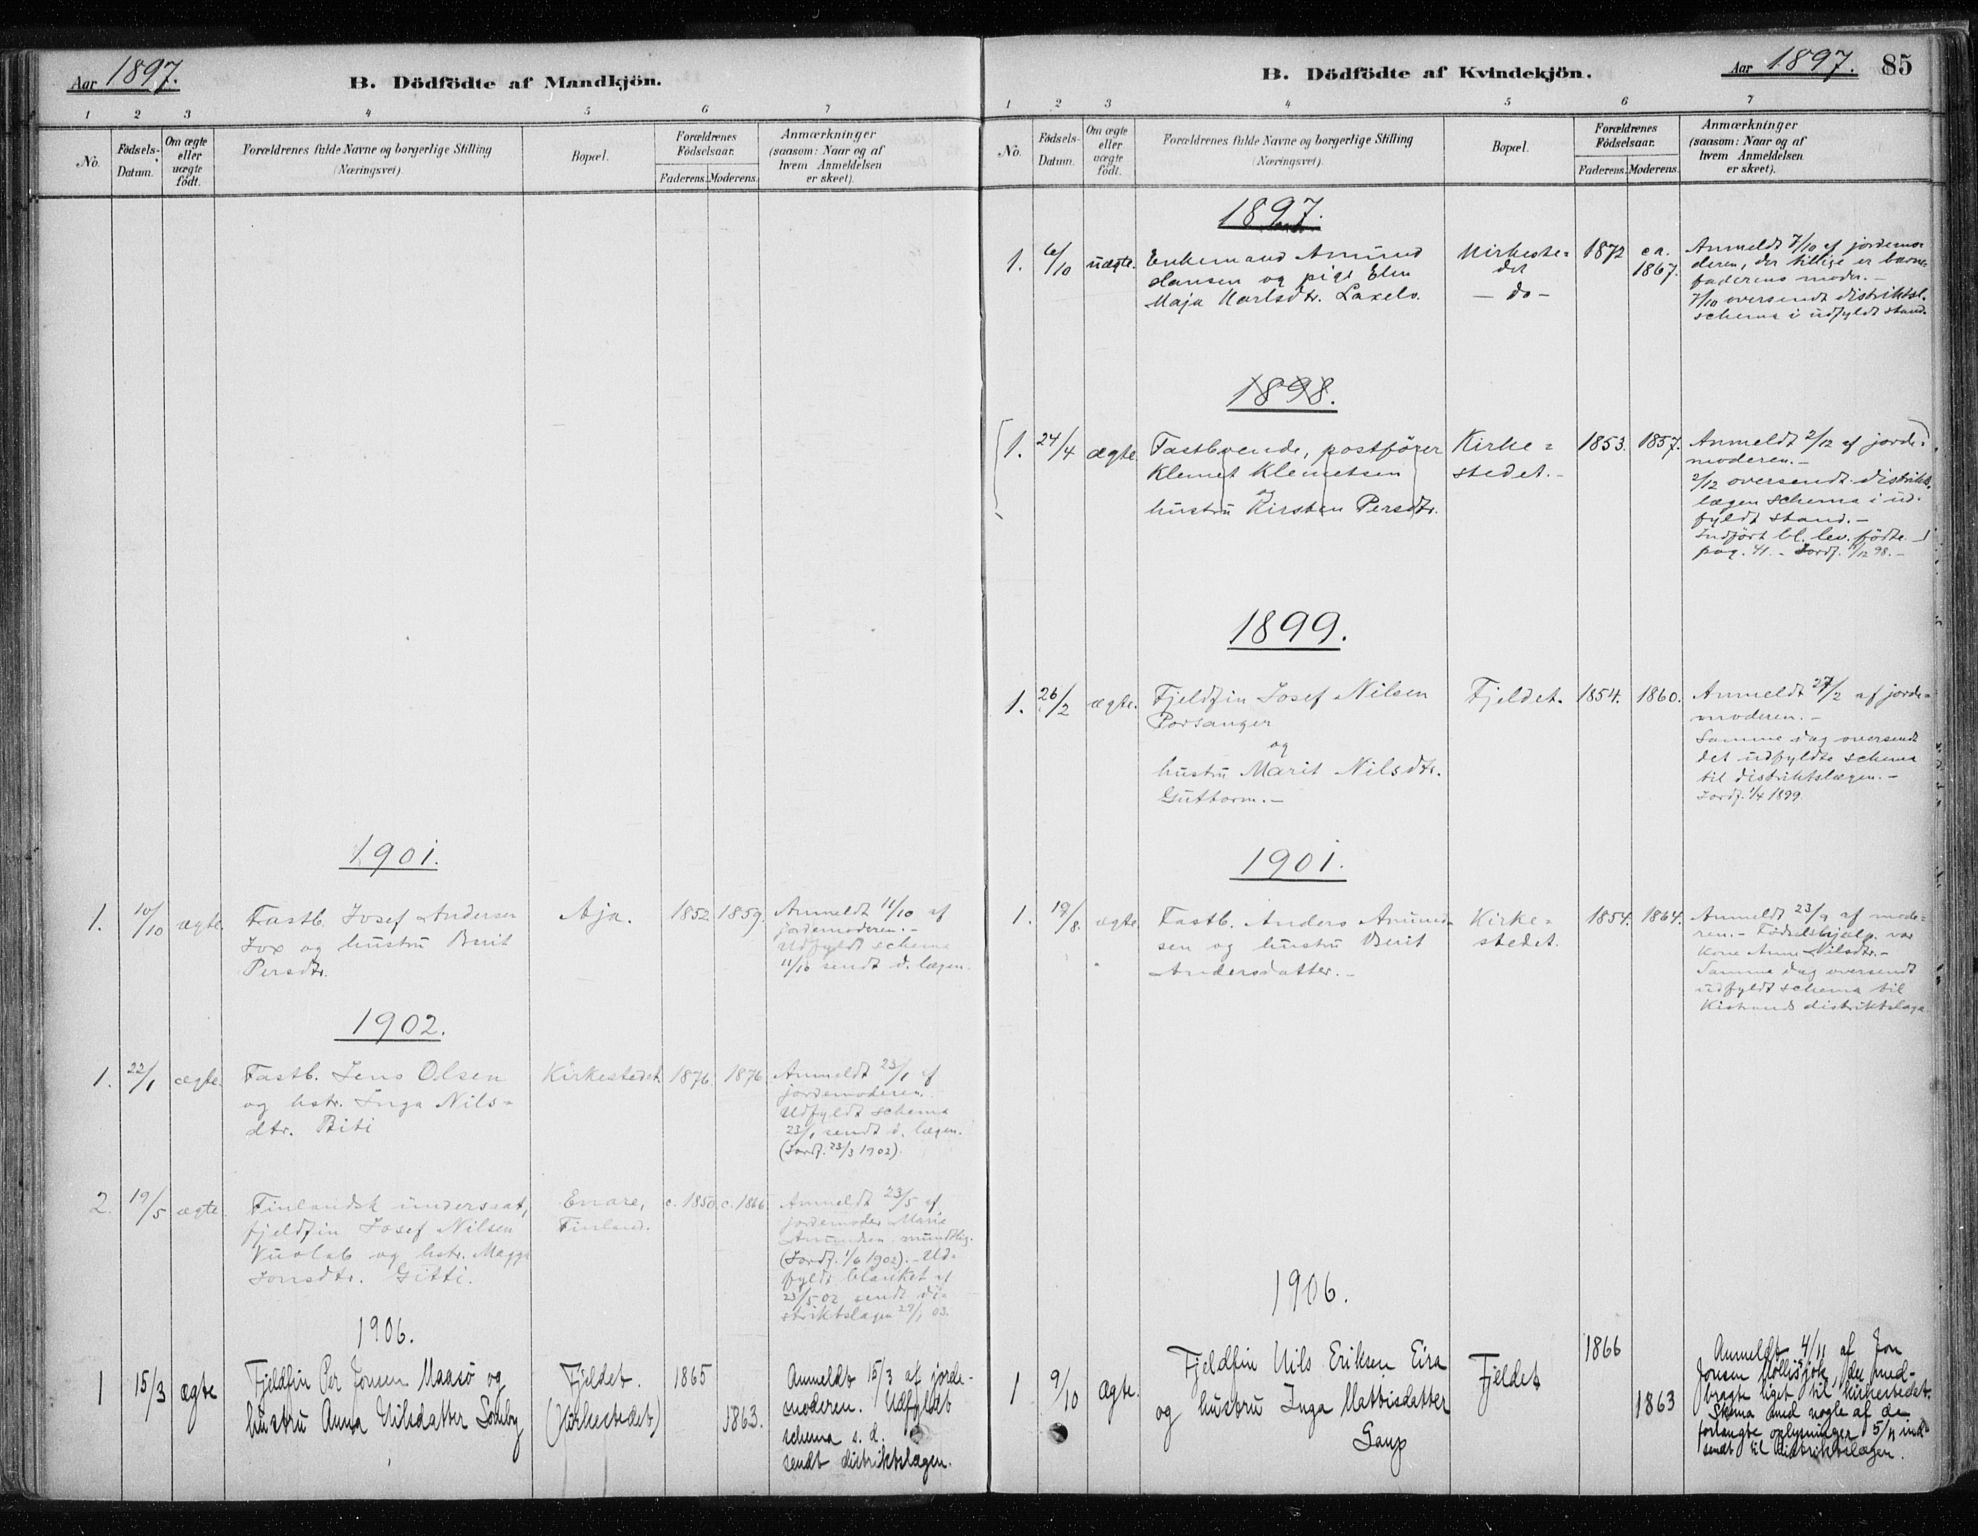 Aar 1897.
B. Dödfödte af Mandkjön.
1 2 3 4 5 6 7
No.
Födsels-Datum.
Om ægte eller uægte født.
Forældrenes fulde Navne og borgerlige Stilling
(Næringsvei).
Bopæl.
Forældrenes Födselsaar.
Faderens. Moderens.
Anmærkninger
(saasom: Naar og af
hvem Anmeldelsen
er skeet).
1901.
1. 10/10 ægte. Fastb. Josef Andersen Aja. 1852 1859. Anmeldt 11/10 af
Jox og hustru Berit jordemoderen. -
Persdtr. Udfyldt schema
11/10 sendt d. lægen.
1902.
1. 22/1 ægte. Fastb. Jens Olsen Kirkestedet 1876. 1876. Anmeldt 23/1 af
og hstr. Inga Nils= jordemoderen.
dtr. Biti Udfyldt schema
23/1 sendt d. lægen.
(Jordf. 23/3 1902).
2. 19/5 ægte. Finlandsk undersaat, Enare, c. 1850. c. 1866. Anmeldt 23/5 af
fjeldfin Josef Nilsen Finland. jordemoder Marie
Vuolab og hstr. Magga Amundsen mundtlig.
Jonsdtr. Gitti. (Jordf. 1/6 1902). - Ud-
fyldt blanket af
23/5 02 sendt di-
striktslægen 29/1 03.
1906.
1 15/3 ægte Fjeldfin Per Jonsen Maasø og Fjeldet. 1865 Anmeldt 15/3 af jorde-
hustru Anna Nilsdatter Somby (Kirkestedet) 1863. moderen. Udfyldt
schema s. d.
sendt distriktslægen.
B. Dödfödte af Kvindekjön.
Aar 1897. 85
1 2 3 4 5 6 7
No.
Födsels-Datum.
Om ægte eller uægte födt.
Forældrenes fulde Navne og borgerlige Stilling
(Næringsvei).
Bopæl.
Forældrenes Födselsaar.
Faderens. Moderens.
Anmærkninger
(saasom: Naar og af
hvem Anmeldelsen
er skeet).
1897.
1. 6/10 uægte. Enkemand Amund Kirkeste- 1872 ca. Anmeldt 7/10 af jordemo-
Hansen og pige Elen det 1867. deren, der tillige er barne-
Maja Karlsdtr. Laxelv. - do - faderens moder. -
7/10 oversendt distriktsl.
schema i udfyldt stand.
1898.
1. 24/4 ægte. Fastboende, postfører Kirke= 1853. 1857. Anmeldt 2/12 af jorde=
Klemet Klemetsen stedet. - moderen. -
og 2/12 oversendt distrikts-
hustru Kirsten Persdtr. lægen schema i ud-
fyldt stand. -
Indført bl. lev. fødte
pag. 41. - Jordf. /12 98. -
1899.
1. 26/2 ægte. Fjeldfin Josef Nilsen Fjeldet. 1854. 1860. Anmeldt 27/2 af jorde=
Porsanger moderen. -
og Samme dag oversendt
hustru Marit Nilsdtr. det udfyldte schema
Guttorm. - til distriktslægen. -
Jordf. 1/4 1899.
1901.
1. 19/8. ægte Fastb. Anders Amund- Kirke- 1854. 1864. Anmeldt 23/9 af mode=
sen og hustru Berit stedet. ren. - Fødselshjælp. var
Andersdatter. - Kone Anne Nilsdtr. -
Samme dag oversendt
udfyldt schema til
Kistrands distriktslæge
1906.
1 9/10 ægte. Fjeldfin Nils Eriksen Eira Fjeldet 1866 Anmeldt 4/11 af Jon
og hustru Inga Mattisdatter 1863 Jonsen Hollisjok, der med-
Saup bragte liget til kirkestedet.
Skema med nogle af de
forlangte oplysninger 5/11 ind-
sendt til distriktslægen.